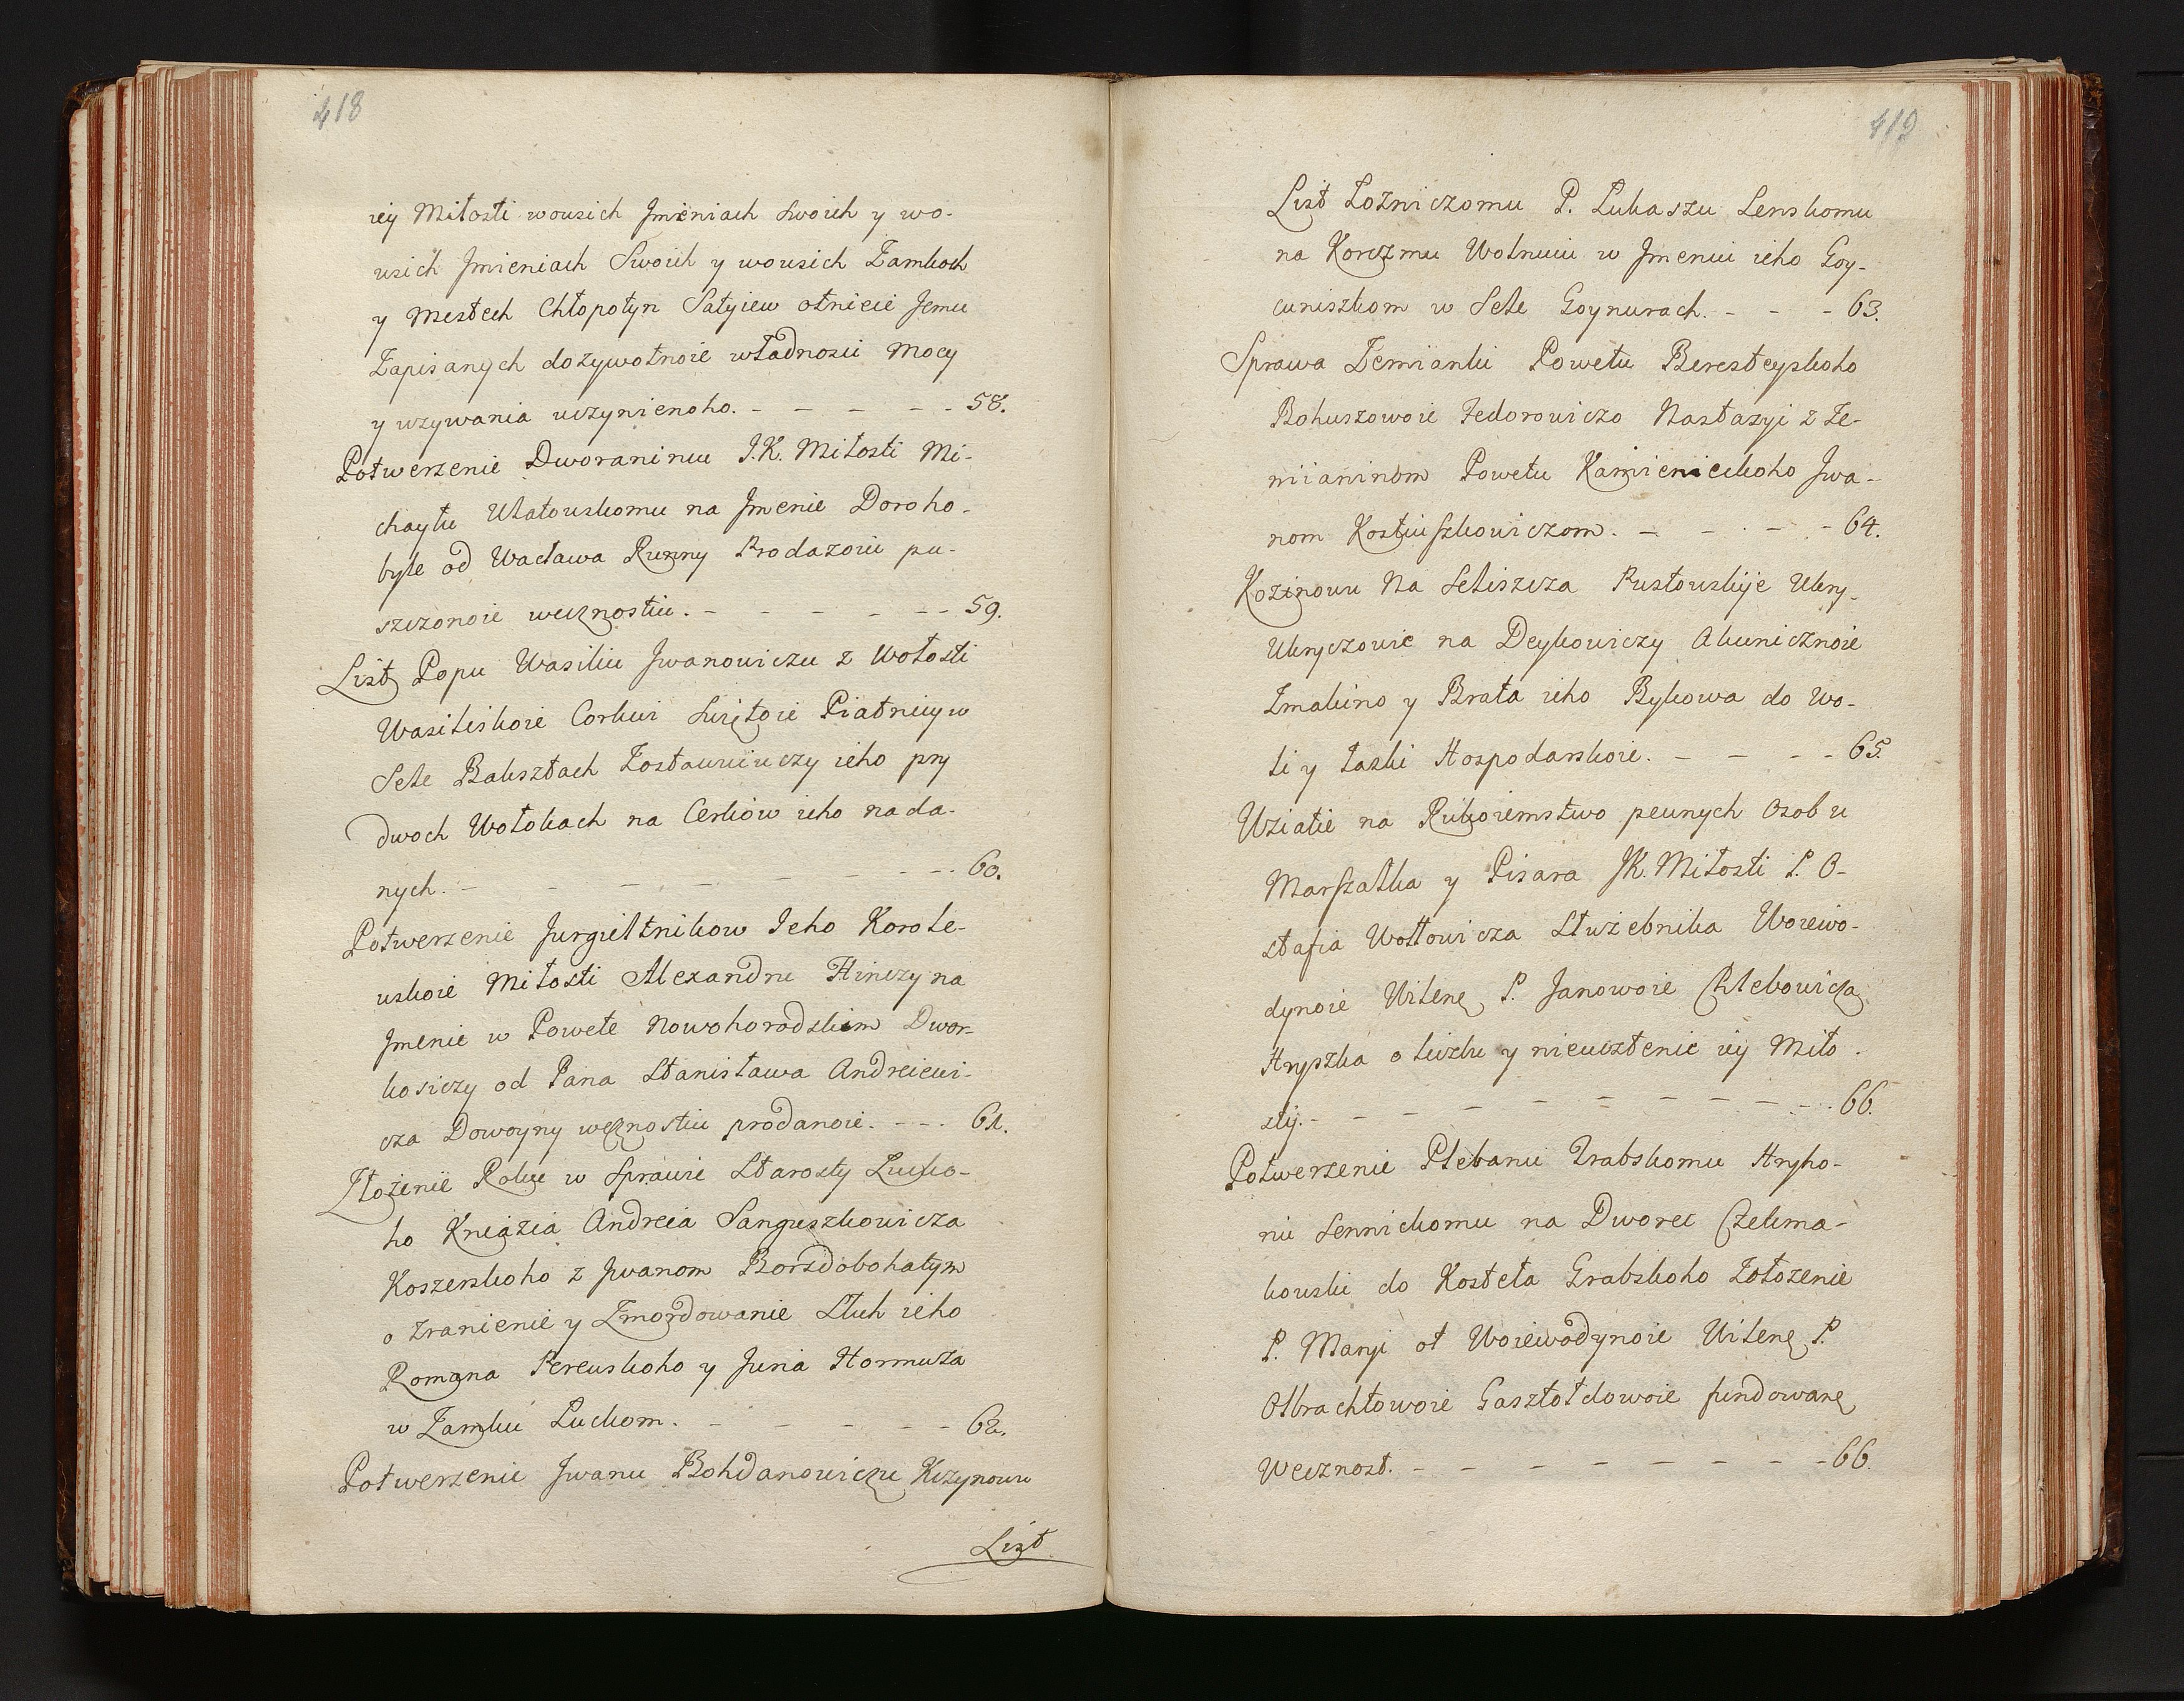 418
iey Miłosti wousich Jmieniach Swoich y wo-
usich Jmieniach Swoich y wousich Zamkoch
y Mestech Chłopotyn Satyiew otnieie Jemu
Zapisanych dożywotnoie władnosti Mocy
y używania uczynienoho. - - - - - 58.
Potwerzenie Dworaninu J.K. Miłosti Mi-
chayłu Ułatouskomu na Jmenie Doroho-
byłe od Wacława Runny Prodazoiu pu-
szczonoie wecznostiu. - - - - - - 59.
List Popu Wasiliu Jwanowiczu z Wołosti
Wasiliskoie Corkwi Swiętoie Piatnicy w
Sele Baksztach Zostawuiuczy ieho pry
dwoch Wołokach na Cerkow ieho nada-
nych. - - - - - - - - 60.
Potwerzenie Jurgieltnikow Jeho Korole-
uskoie Miłosti Alexandru Hinczy na
Jmenie w Powete Nowohorodskim Dwor-
kosiczy od Pana Stanisława Andreiewi-
cza Dowoyny wecznostiu prodanoie. - - - 61.
Złożenie Roku w Sprawie Starosty Łucko-
ho Kniazia Andreia Sanguszkowicza
Koszerskoho z Jwanom Borzdobohatym
o Zranienie y Zmordowanie Sług ieho
Romana Pereuskoho y Juria Hormuza
w Zamku Łuckom. - - - - - - 62.
Potwerzenie Jwanu Bohdanowiczu Kczynowu
List
419
List Łożniczomu P. Łukaszu Lenskomu
na Korczmu Wolnuiu w Jmeniu ieho Goy-
cuniszkom w Sele Goynurach. - - - 63.
Sprawa Zemianki Powetu Beresteyskoho
Bohuszowoie Fedorowicza Nastazyi z Ze-
miianinom Powetu Kamienieckoho Jwa-
nom Kostiuszkowiczom. - - - - - 64.
Kozinowu Na Seliszcza Pustouskije Ukry-
Ukryczowie na Deykowiczy Akunicznoie
Zmakino y Brata ieho Bykowa do Wo-
li y łaski Hospodarskoie. - - - - 65.
Uziatie na Rukoiemstwo peunych Osob u
Marszałka y Pisara JK. Miłosti P. O-
stafia Wołłowicza Służebnika Woiewo-
dynoie Wilenę P. Janowoie Chlebowicza
Hryszka o liczbu y nieuczłenie iey Miło-
sty. - - - - - - - - - - 66.
Potwerzenie Plebanu Trabskomu Hryho-
riu Sennickomu na Dworec Czekma-
kouski do Kosteła Grabskoho Założenie
P. Maryi ot Woiewodynoie Wilenę P.
Olbrachtowoie Gasztołdowoie fundowanę
Wecznost. - - - - - - - - 66.